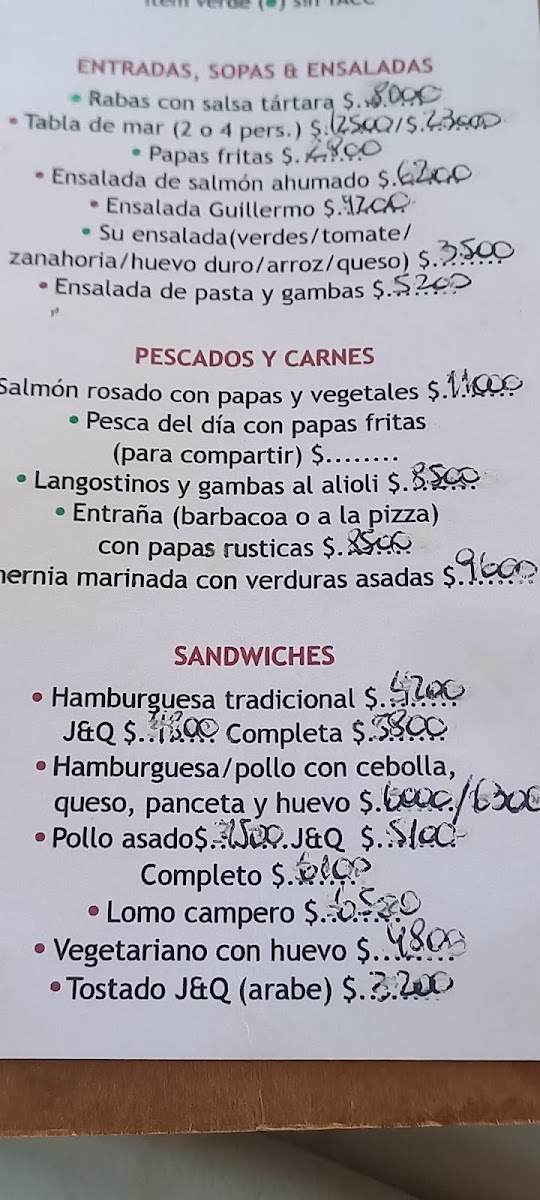 Item verde (•) sin TACC
ENTRADAS, SOPAS & ENSALADAS
• Rabas con salsa tártara $.8000
• Tabla de mar (2 o 4 pers.) $.12500/$.23000
• Papas fritas $.
• Ensalada de salmón ahumado $.6200
• Ensalada Guillermo $.4200
• Su ensalada(verdes/tomate/
zanahoria/huevo duro/arroz/queso) $.3500
• Ensalada de pasta y gambas $.5200
PESCADOS Y CARNES
Salmón rosado con papas y vegetales $.11000
• Pesca del día con papas fritas
(para compartir) $........
• Langostinos y gambas al alioli $.8500
• Entraña (barbacoa o a la pizza)
con papas rusticas $.8500
hernia marinada con verduras asadas $.9600
SANDWICHES
• Hamburguesa tradicional $.4200
J&Q $. Completa $.5800
• Hamburguesa/pollo con cebolla,
queso, panceta y huevo $.6000/6300
• Pollo asado$. J&Q $.5100
Completo $.
• Lomo campero $.
• Vegetariano con huevo $.4800
• Tostado J&Q (arabe) $.3.200